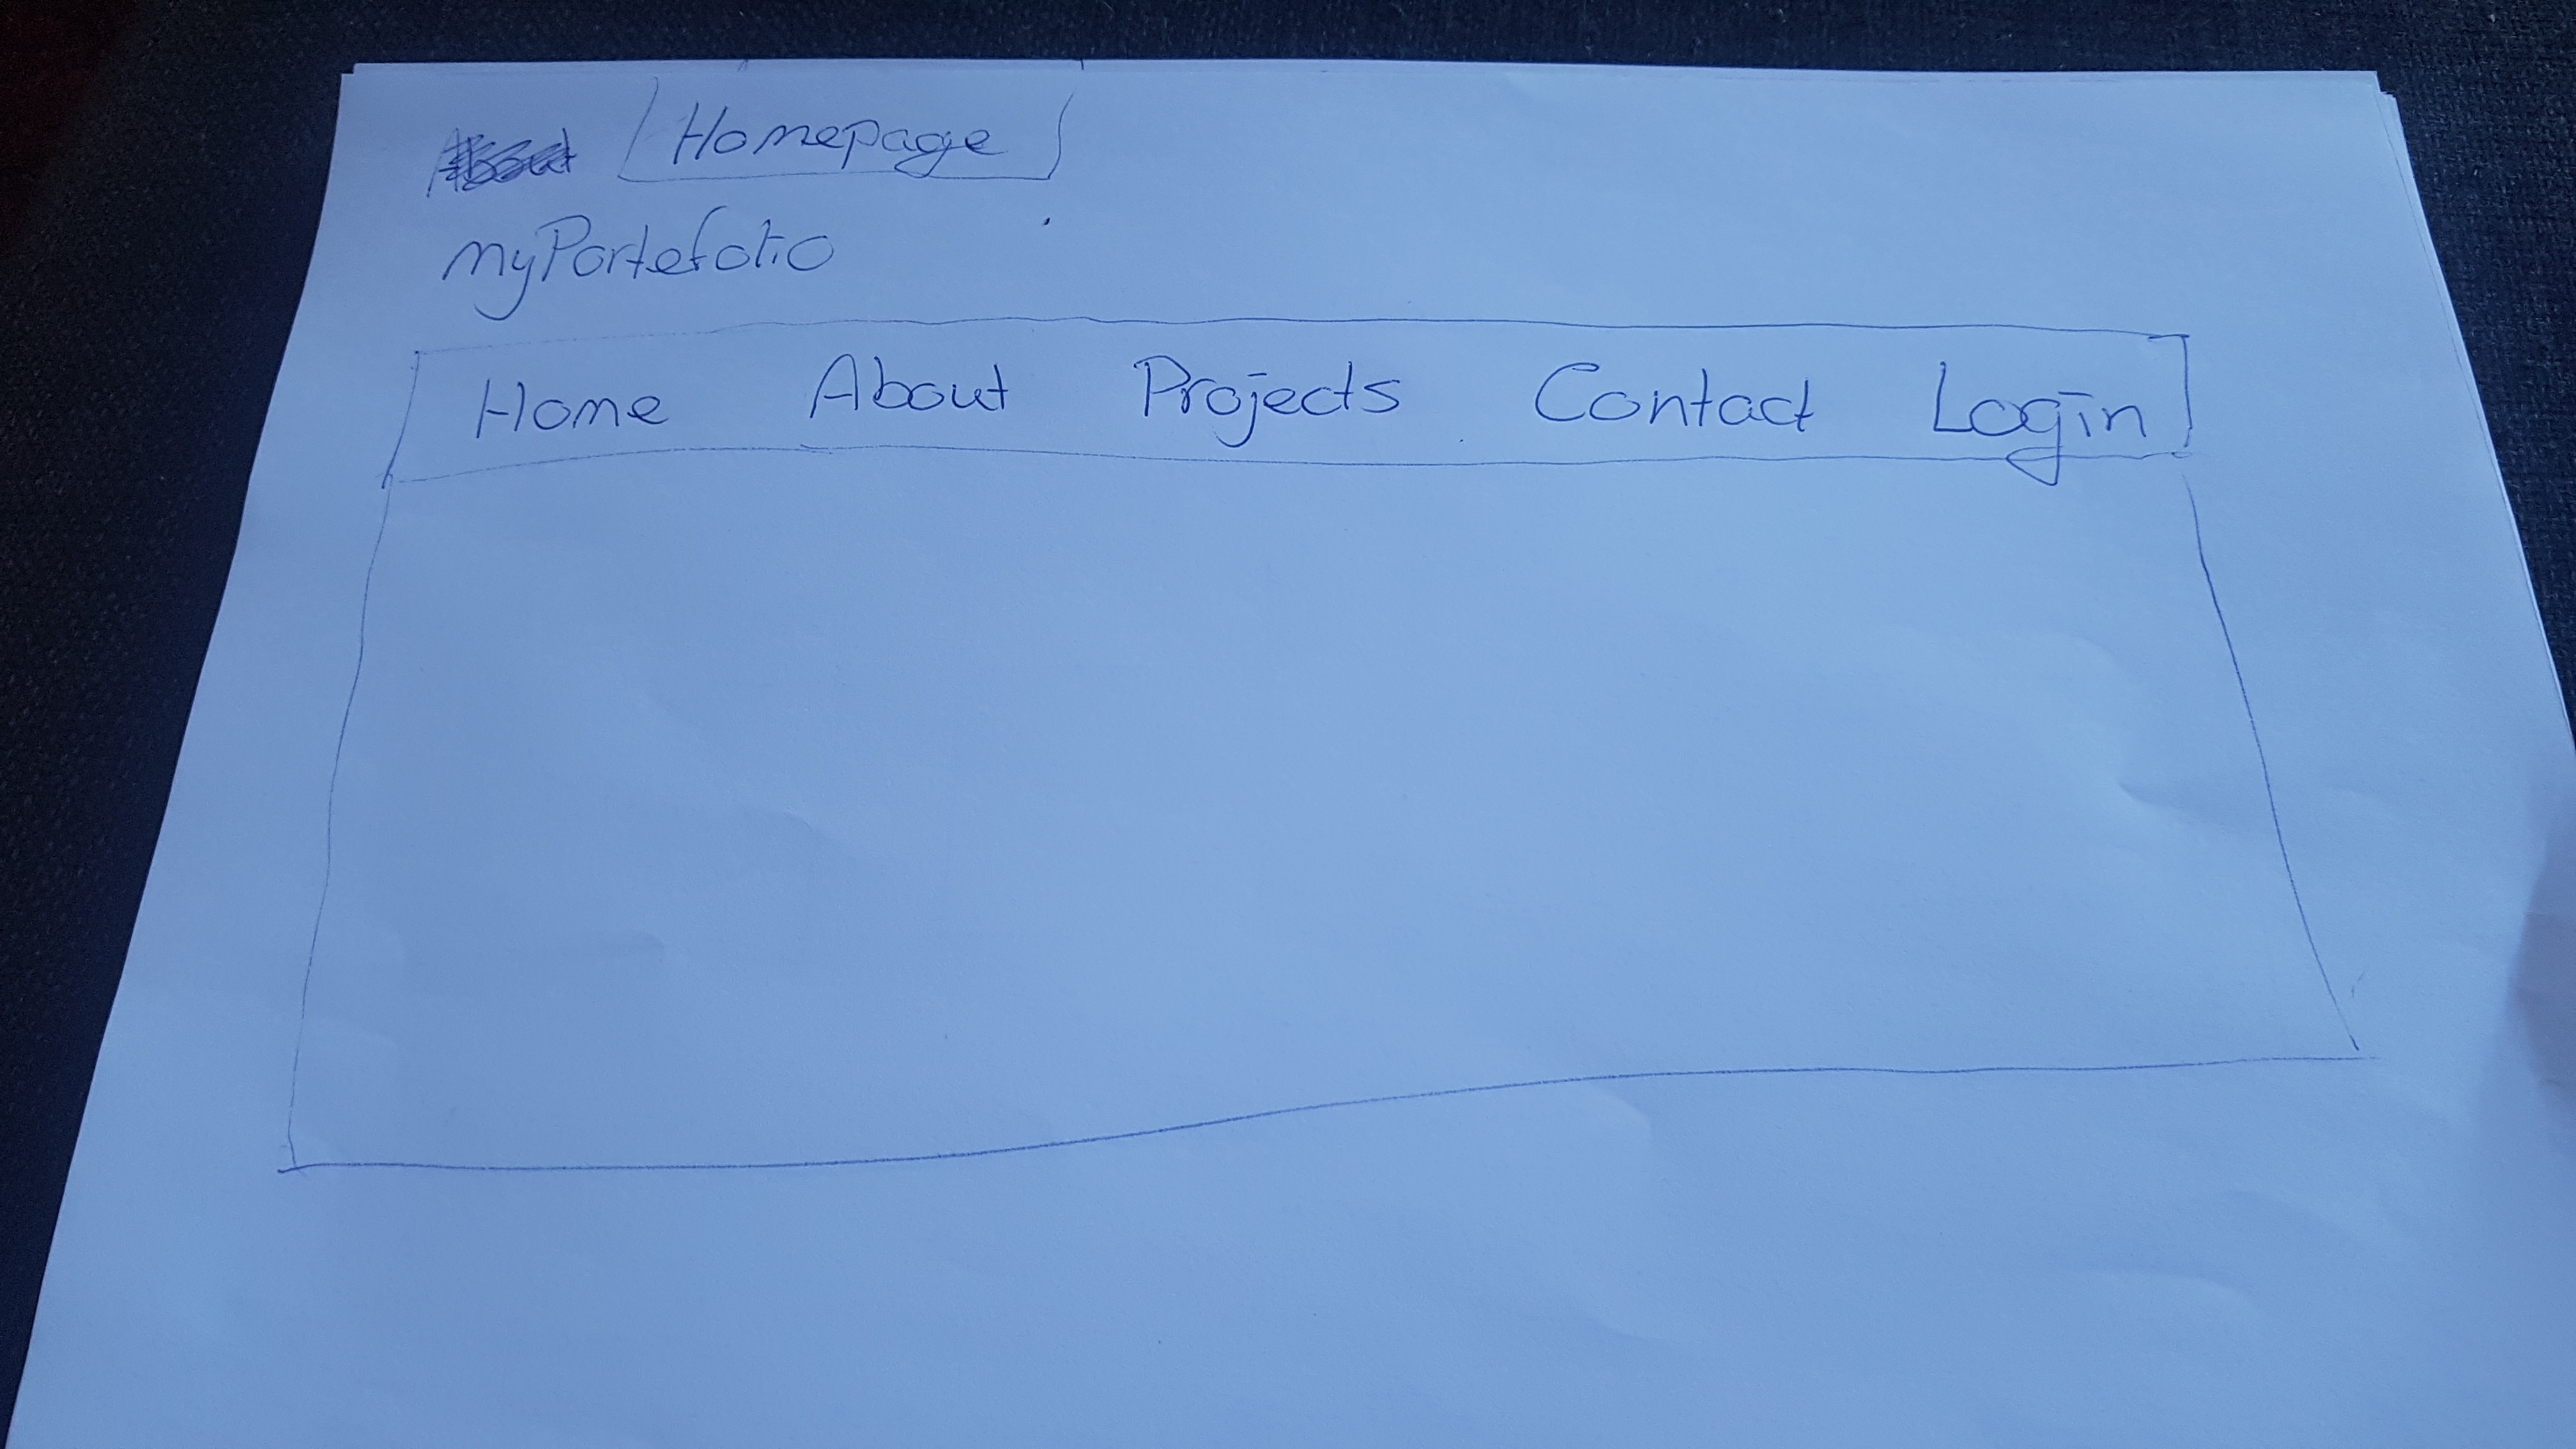 Homepage
myPortefolio
Home About Projects Contact Login